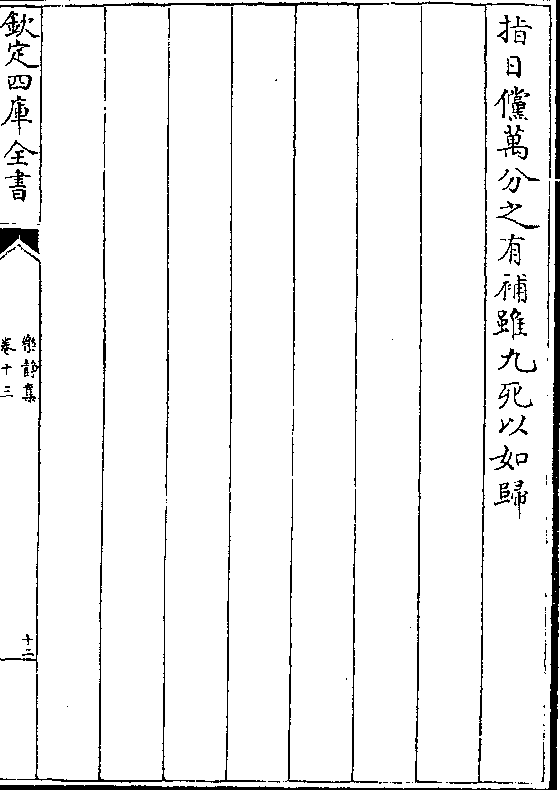 指日儻萬分之有補雖九死以如歸
欽定四庫全書
樂靜集
卷十三
十二